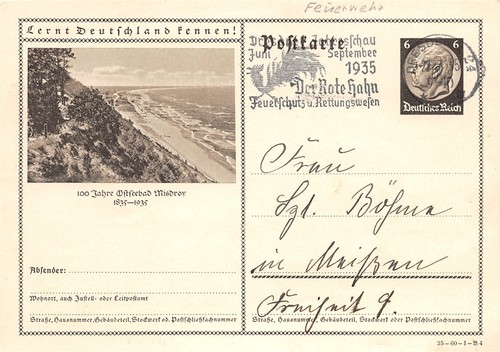 Feuerwehr
Lernt Deutschland kennen!
Postkarte
Jahresschau
Juni September
1935
Der Rote Hahn
Feuerschutz u. Rettungswesen
6 6
Deutsches Reich
100 Jahre Ostseebad Misdroy
1835–1935
Frau
Böhme
in Meißen
Freiheit 9.
Absender:
Wohnort, auch Zustell- oder Leitpostamt
Straße, Hausnummer, Gebäudeteil, Stockwerk od. Postschließfachnummer
Straße, Hausnummer, Gebäudeteil, Stockwerk oder Postschließfachnummer
35-60-1-B4